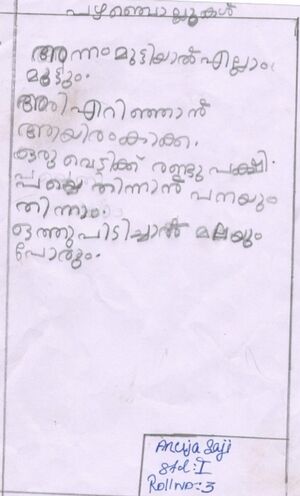 പഴഞ്ചൊല്ലുകൾ
അന്നം മുട്ടിയാൽ എല്ലാം
മുട്ടും.
അരി എറിഞ്ഞാൽ
ആയിരം കാക്ക.
ഒരു വെട്ടിക്ക് രണ്ടു പക്ഷി.
പയ്യെ തിന്നാൽ പനയും
തിന്നാം.
ഒത്തു പിടിച്ചാൽ മലയും
പോരും.
Anuja Saji
Std: I
Roll No: 3